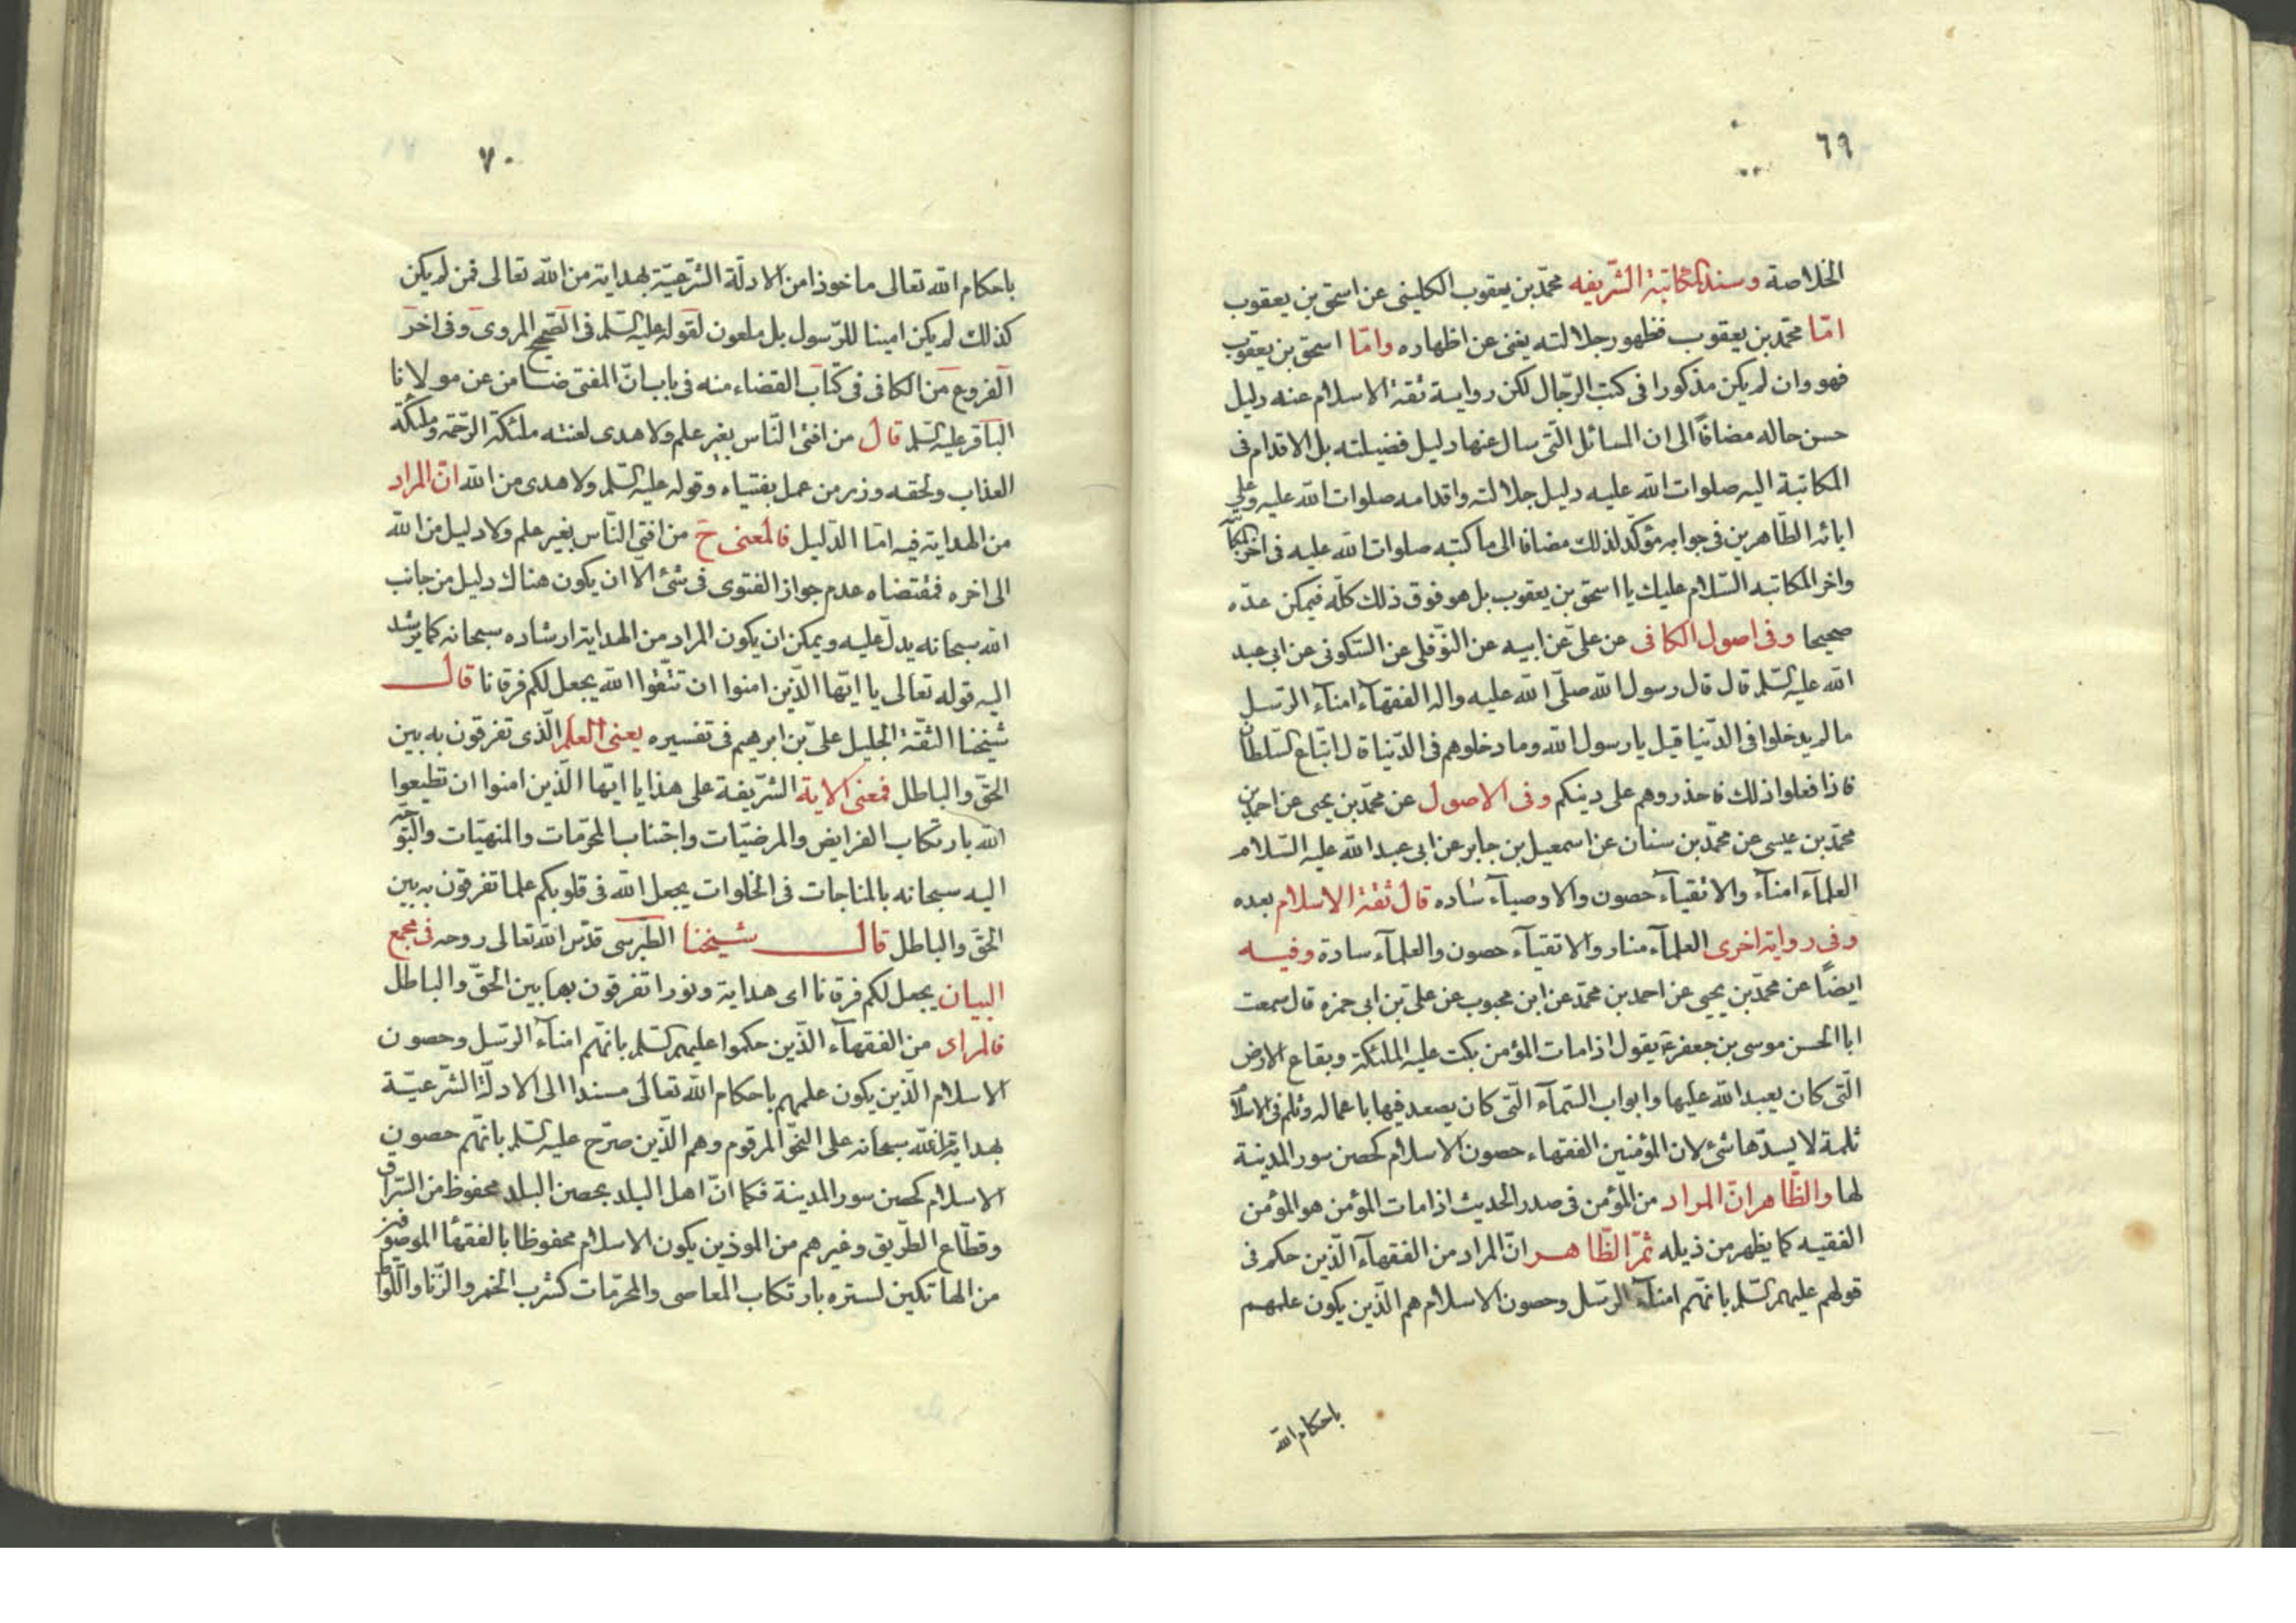 ٦٩
الخلاصة وسند المكاتبة الشريفه محمّد بن يعقوب الكلينى عن اسحق بن يعقوب
امّا محمّد بن يعقوب فظهور جلالته يغنى عن اظهاره وامّا اسحق بن يعقوب
فهو وان لم يكن مذكورا فى كتب الرّجال لكن رواية ثقة الاسلام عنه دليل
حسن حاله مضافاً الى ان المسائل الّتى سال عنها دليل فضيلته بل الاقدام فى
المكاتبة اليه صلوات الله عليه دليل جلالته واقدامه صلوات الله عليه وعلى
ابائه الطّاهرين فى جوابه مؤكّد لذلك مضافا الى ما كتبه صلوات الله عليه فى اخر
واخر المكاتبه السّلام عليك يا اسحق بن يعقوب بل هو فوق ذلك كلّه فيمكن عدّه
صحيحا وفى اصول الكافى عن علىّ عن ابيه عن النّوفلى عن السّكونى عن ابى عبد
الله عليه السّلم قال قال رسول الله صلّى الله عليه واله الفقهآء امنآء الرّسل
ما لم يدخلوا فى الدّنيا قيل يا رسول الله وما دخلوهم فى الدّنيا قال اتّباع السّلطان
فاذا فعلوا ذلك فاحذروهم على دينكم وفى الاصول عن محمّد بن يحيى عن احمد بن
محمّد بن عيسى عن محمّد بن سنان عن اسمعيل بن جابر عن ابى عبد الله عليه السّلام
العلمآء امنآء والاتقيآء حصون والاوصيآء ساده قال ثقة الاسلام بعده
وفى رواية اخرى العلمآء منار والاتقيآء حصون والعلمآء سادة وفيه
ايضًا عن محمّد بن يحيى عن احمد بن محمّد عن ابن محبوب عن علىّ بن ابى حمزه قال سمعت
ابا الحسن موسى بن جعفر ع يقول اذا مات المؤمن بكت عليه الملئكة وبقاع الارض
الّتى كان يعبد الله عليها وابواب السّمآء الّتى كان يصعد فيها باعماله وثلم فى الاسلام
ثلمة لا يسدّها شئ لان المؤمنين الفقهاء حصون الاسلام كحصن سور المدينة
لها والظّاهر انّ المراد من المؤمن فى صدر الحديث اذا مات المؤمن هو المؤمن
الفقيه كما يظهر من ذيله ثمّ الظّاهر انّ المراد من الفقهآء الّذين حكم فى
قولهم عليهم السّلم بانّهم امنآء الرّسل وحصون الاسلام هم الّذين يكون علمهم
باحكام الله
٧٠
باحكام الله تعالى ماخوذا من الادلّة الشّرعيّة بهداية من الله تعالى فمن لم يكن
كذلك لم يكن امينا للرّسول بل ملعون لقوله عليه السّلم فى الصّحيح المروى وفى اخر
الفروع من الكافى فى كتاب القضاء منه فى باب انّ المفتى ضامن عن مولانا
الباقر عليه السّلم قال من افتى النّاس بغير علم ولا هدى لعنته ملئكة الرّحمة وملئكة
العذاب ولحقه وزر من عمل بفتياه وقوله عليه السّلم ولا هدى من الله انّ المراد
من الهداية فيه امّا الدّليل فالمعنى ح من افتى النّاس بغير علم ولا دليل من الله
الى اخره فمقتضاه عدم جواز الفتوى فى شئ الّا ان يكون هناك دليل من جانب
الله سبحانه يدلّ عليه ويمكن ان يكون المراد من الهداية ارشاده سبحانه كما يرشد
اليه قوله تعالى يا ايّها الّذين امنوا ان تتّقوا الله يجعل لكم فرقانا قال
شيخنا الثقة الجليل علىّ بن ابرهيم فى تفسيره يعنى العلم الّذى تفرقون به بين
الحقّ والباطل فمعنى الاية الشّريفة على هذا يا ايّها الّذين امنوا ان تطيعوا
الله بارتكاب الفرايض والمرضيّات واجتناب المحرّمات والمنهيّات والتّوجّه
اليه سبحانه بالمناجات فى الخلوات يجعل الله فى قلوبكم علما تفرقون به بين
الحقّ والباطل قال شيخنا الطّبرسى قدّس الله تعالى روحه فى مجمع
البيان يجعل لكم فرقانا اى هداية ونورا تفرقون بها بين الحقّ والباطل
فالمراد من الفقهآء الّذين حكموا عليهم السّلم بانّهم امنآء الرّسل وحصون
الاسلام الّذين يكون علمهم باحكام الله تعالى مسندا الى الادلّة الشّرعيّة
بهداية الله سبحانه على النّحو المرقوم وهم الّذين صرّح عليه السّلم بانّهم حصون
الاسلام كحصن سور المدينة فكما انّ اهل البلد بحصن البلد محفوظ من السّراق
وقطّاع الطّريق وغيرهم من الموذين يكون الاسلام محفوظا بالفقهآء الموصوفين
من الهاتكين لستره بارتكاب المعاصى والمحرّمات كشرب الخمر والزّنا واللّواط